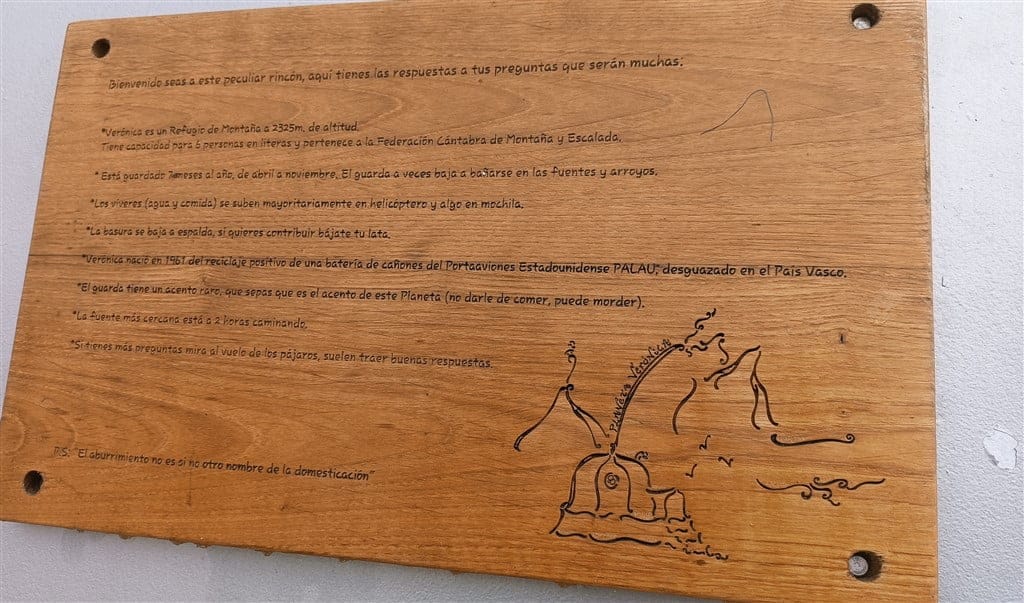 Bienvenido seas a este peculiar rincón, aquí tienes las respuestas a tus preguntas que serán muchas:
*Verónica es un Refugio de Montaña a 2325m. de altitud.
Tiene capacidad para 6 personas en literas y pertenece a la Federación Cántabra de Montaña y Escalada.
* Está guardado 7meses al año, de abril a noviembre. El guarda a veces baja a bañarse en las fuentes y arroyos.
*Los víveres (agua y comida) se suben mayoritariamente en helicóptero y algo en mochila.
*La basura se baja a espalda, si quieres contribuir bájate tu lata.
*Verónica nació en 1961 del reciclaje positivo de una batería de cañones del Portaaviones Estadounidense PALAU; desguazado en el País Vasco.
*El guarda tiene un acento raro, que sepas que es el acento de este Planeta (no darle de comer, puede morder).
*La fuente más cercana está a 2 horas caminando.
*Si tienes más preguntas mira al vuelo de los pájaros, suelen traer buenas respuestas.
P.S: "El aburrimiento no es si no otro nombre de la domesticación"